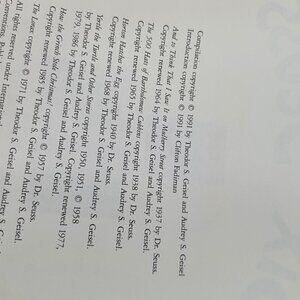 Compilation copyright © 1991 by Theodor S. Geisel and Audrey S. Geisel
Introduction copyright © 1991 by Clifton Fadiman
And to Think That I Saw It on Mulberry Street copyright 1937 by Dr. Seuss.
Copyright renewed 1964 by Theodor S. Geisel and Audrey S. Geisel.
The 500 Hats of Bartholomew Cubbins copyright 1938 by Dr. Seuss.
Copyright renewed 1965 by Theodor S. Geisel and Audrey S. Geisel.
Horton Hatches the Egg copyright 1940 by Dr. Seuss.
Copyright renewed 1968 by Theodor S. Geisel and Audrey S. Geisel.
Yertle the Turtle and Other Stories copyright 1950, 1951, © 1958
by Theodor S. Geisel and Audrey S. Geisel. Copyright renewed 1977,
1979, 1986 by Theodor S. Geisel and Audrey S. Geisel.
How the Grinch Stole Christmas! copyright © 1957 by Dr. Seuss.
Copyright renewed 1985 by Theodor S. Geisel and Audrey S. Geisel.
The Lorax copyright © 1971 by Theodor S. Geisel and Audrey S. Geisel.
All rights reserved under International